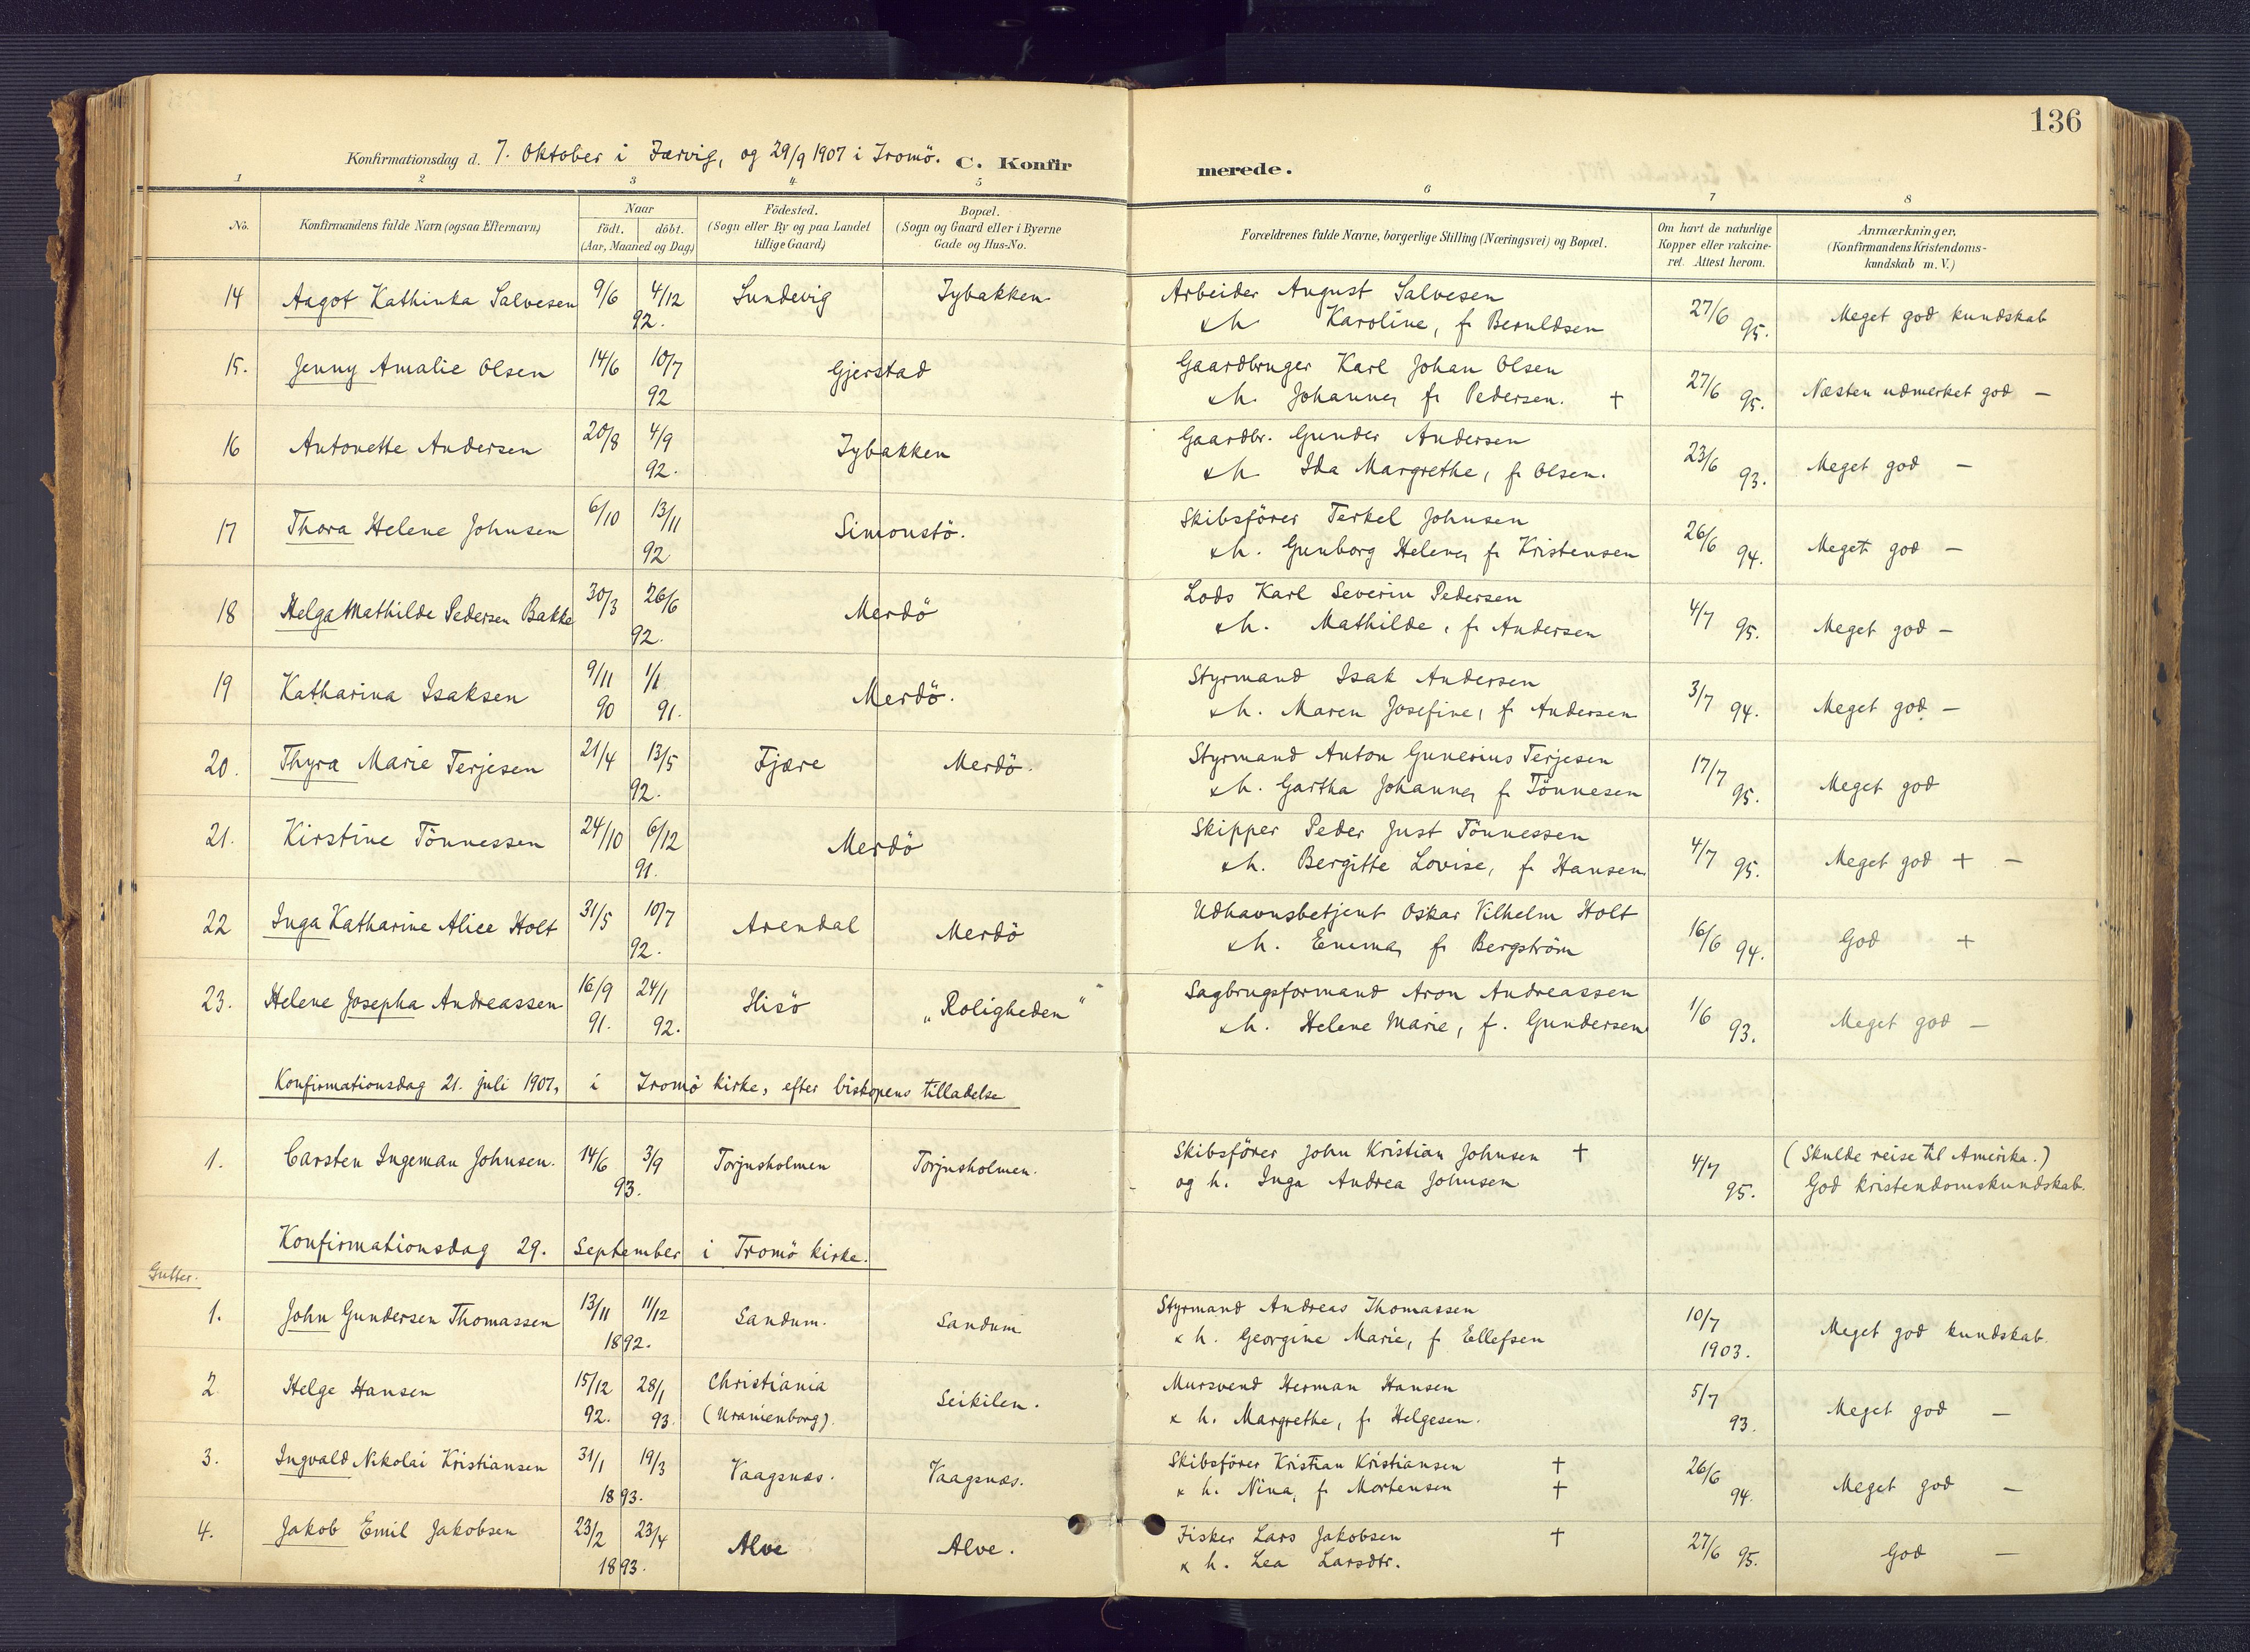 136
Konfirmationsdag d. 7. Oktober i Færvig, og 29/9 1907 i Tromö. C. Konfirmerede.
1 2 3 4 5 6 7 8
No. Konfirmandens fulde Navn (ogsaa Efternavn) Naar födt. döbt. (Aar, Maaned og Dag) Födested. (Sogn eller By og paa Landet tillige Gaard) Bopæl. (Sogn og Gaard eller i Byerne Gade og Hus-No. Forældrenes fulde Navne, borgerlige Stilling (Næringsvei) og Bopæl. Om havt de naturlige Kopper eller vakcineret. Attest herom. Anmærkninger. (Konfirmandens Kristendomskundskab m. V.)
14 Aagot Kathinka Salvesen 9/6 4/12 Sundevig Tybakken Arbeider August Salvesen 27/6 Meget god kundskab
92. & h Karoline, f. Beruldsen 95.
15. Jenny Amalie Olsen 14/6 10/7 Gjerstad Gaardbruger Karl Johan Olsen 27/6 Næsten udmerket god —
92 & h. Johanne, f. Pedersen. † 95.
16 Antonette Andersen 20/8 4/9 Tybakken Gaardbr. Gunder Andersen 23/6 Meget god —
92. & h Ida Margrethe, f. Olsen. 93.
17 Thora Helene Johnsen 6/10 13/11 Simonstö. Skibsförer Terkel Johnsen 26/6 Meget god —
92 & h. Gunborg Helene, f. Kristensen 94.
18 Helga Mathilde Pedersen Bakke 30/3 26/6 Merdö Lods Karl Severin Pedersen 4/7 Meget god —
92. & h. Mathilde, f. Andersen 95.
19 Katharina Isaksen 9/11 1/1 Merdö. Styrmand Isak Andersen 3/7 Meget god —
90 91. & h. Maren Josefine, f. Andersen 94.
20. Thyra Marie Terjesen 21/4 13/5 Fjære Merdö. Styrmand Anton Gunerius Terjesen 17/7 Meget god
92. & h. Gartha Johanne, f. Tönnesen 95.
21. Kirstine Tönnessen 24/10 6/12 Merdö Skipper Peder Just Tönnessen 4/7 Meget god + —
91. & h. Bergitte Lovise, f. Hansen. 95.
22 Inga Katharine Alice Holt 31/5 10/7 Arendal Merdö Udhavnsbetjent Oskar Vilhelm Holt 16/6 God +
92. & h. Emma, f. Bergström 94.
23. Helene Josepha Andreassen 16/9 24/1 Hisö „Roligheden" Sagbrugsformand Aron Andreassen 1/6 Meget god —
91. 92. & h. Helene Marie, f. Gundersen 93.
Konfirmationsdag 21. juli 1907, i Tromö kirke, efter biskopens tilladelse
1. Carsten Ingeman Johnsen. 14/6 3/9 Torjusholmen Torjusholmen. Skibsförer John Kristian Johnsen † 4/7 (Skulde reise til Amerika.)
93. og h. Inga Andrea Johnsen 95. God kristendomskundskab.
Konfirmationsdag 29. September i Tromö kirke.
Gutter.
1. John Gundersen Thomassen 13/11 11/12 Sandum. Sandum Styrmand Andreas Thomassen 10/7 Meget god kundskab.
1892. & h. Georgine Marie, f. Ellefsen 1903.
2 Helge Hansen 15/12 28/1 Christiania Seikilen. Mursvend Herman Hansen 5/7 Meget god —
92. 93. (Uranienborg). & h. Margrethe, f. Helgesen. 93.
3. Ingvald Nikolai Kristiansen 31/1 19/3 Vaagsnæs. Vaagsnæs. Skibsförer Kristian Kristiansen † 26/6 Meget god —
1893. & h. Nina, f. Mortensen † 94.
4. Jakob Emil Jakobsen 23/2 23/4 Alve Alve. Fisker Lars Jakobsen † 27/6 95. God —
1893. & h. Lea Larsdtr.